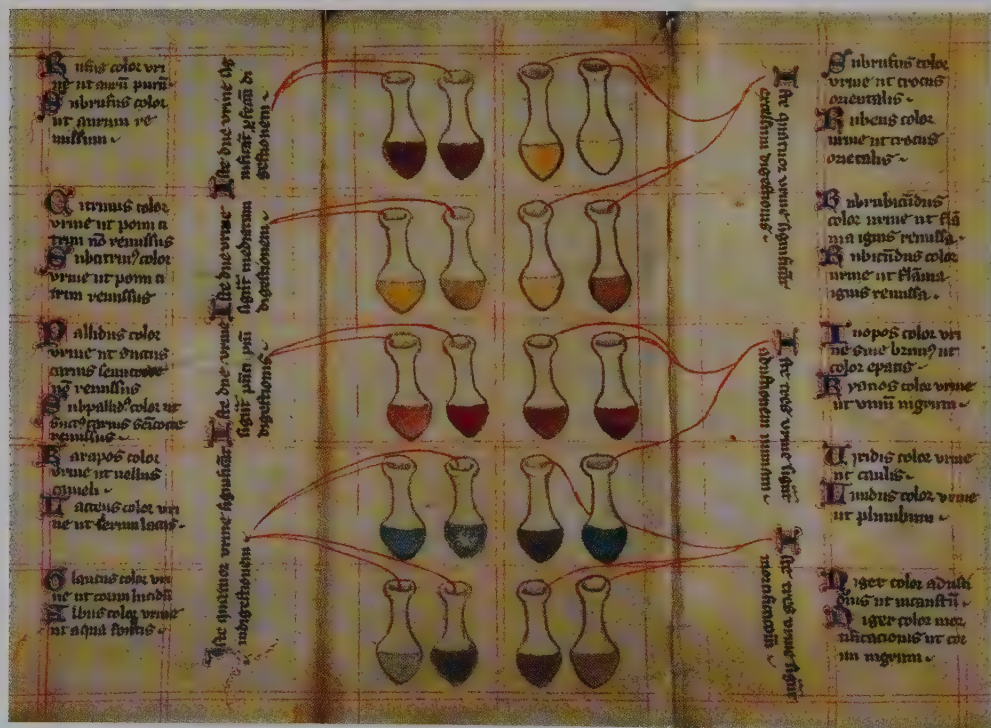 Rufus color uri
ne ut aurū purū
Subrufus color
ut aurum re
missum
Citrinus color
urine ut pomi ci
trini nō remissus
Subcitrin⁹ color
urine ut pomi ci
trini remissus
Pallidus color
urine ut succus
carnis semicocte
nō remissus
Subpallid⁹ color ut
succ⁹ carnis semicocte
remissus
Karapos color
urine ut vellus
cameli
Lacteus color uri
ne ut serum lactis
Glaucus color uri
ne ut cornu lucidū
Albus color urine
ut aqua fontis
Iste due urine sig
nificāt perfectā di
gestionem
Iste due urine
significāt mediocrem
digestionem
Iste due urine
significāt
digestionis
Iste quatuor urine significāt
indigestionem
Iste quatuor urine significāt
excessum digestionis
Iste tres urine significāt
adustionem nimiam
Iste tres urine significāt
mortificacionē
Subrufus color
urine ut crocus
orientalis
Rubeus color
urine ut crocus
orientalis
Subrubicūdus
color urine ut flā
ma ignis remissa
Rubicūdus color
urine ut flāma
ignis remissa
Inopos color uri
ne sive
color epatis
Kyanos color urine
ut vinū nigrum
Viridis color urine
ut caulis
Lividus color urine
ut plumbum
Niger color adusti
onis ut incaustū
Niger color mor
tificacionis ut cor
nu nigrum